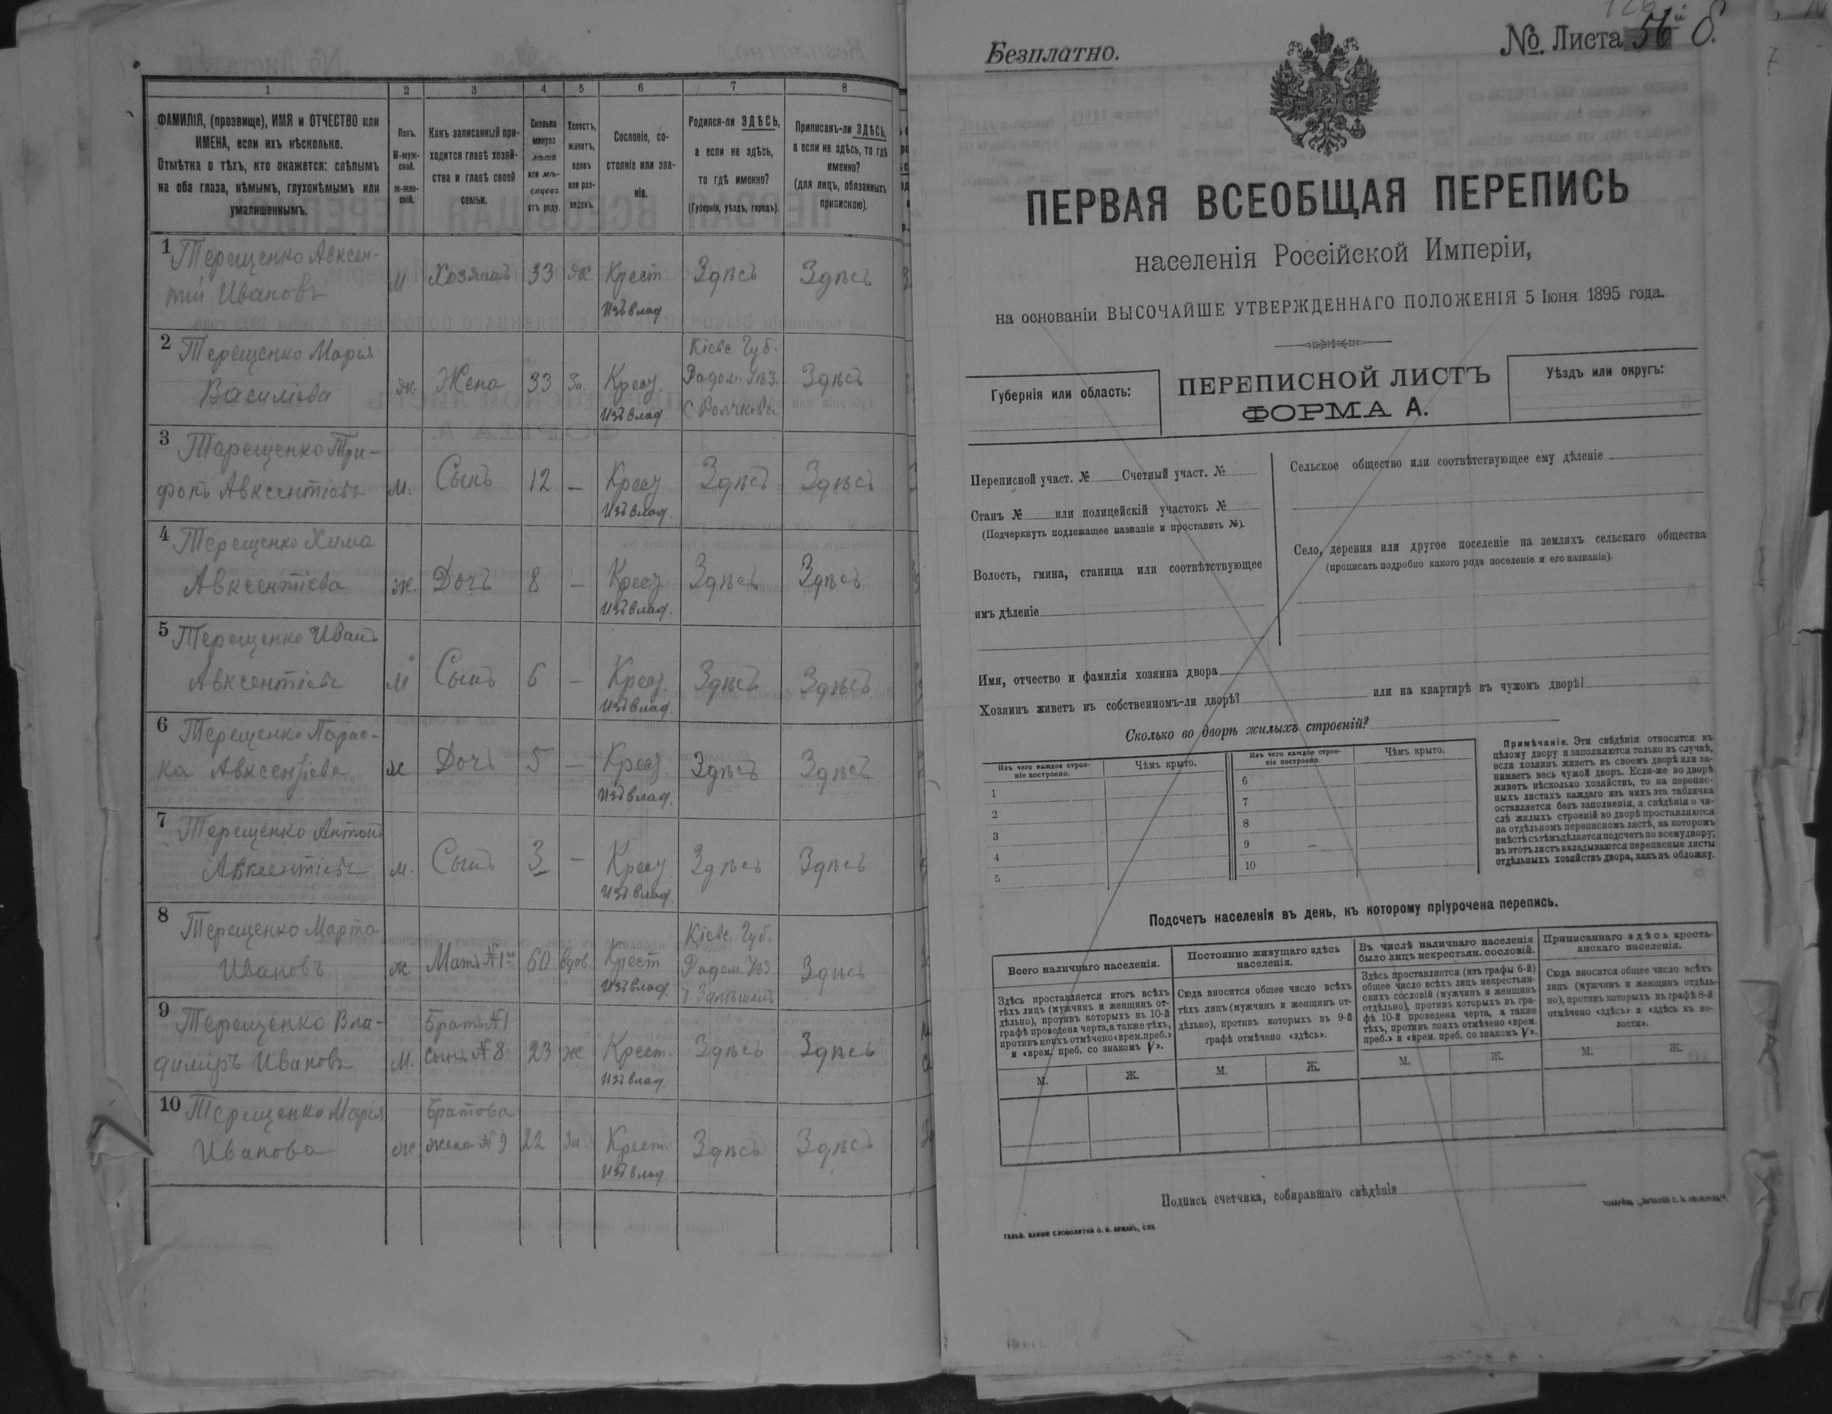 1
2
3
4
5
6
7
8
ФАМИЛІЯ, (прозвище), ИМЯ и ОТЧЕСТВО или
ИМЕНА, если ихъ нѣсколько.
Отмѣтка о тѣхъ, кто окажется: слѣпымъ
на оба глаза, нѣмымъ, глухонѣмымъ или
умалишеннымъ.
Полъ.
М-муж-
ской.
ж-жен-
скій.
Какъ записанный при-
ходится главѣ хозяй-
ства и главѣ своей
семьи.
Сколько
минуло
лѣтъ
или мѣ-
сяцевъ
отъ роду.
Холостъ,
женатъ,
вдовъ
или раз-
веденъ.
Сословіе, со-
стояніе или зва-
ніе.
Родился-ли ЗДѢСЬ,
а если не здѣсь,
то гдѣ именно?
(Губернія, уѣздъ, городъ).
Приписанъ-ли ЗДѢСЬ,
а если не здѣсь, то гдѣ
именно?
(для лицъ, обязанныхъ
припискою).
1 Терещенко Авксен-
тій Ивановъ
м. Хозяинъ 33 ж Крест Здѣсь Здѣсь
Изъ влад
2 Терещенко Марія
Василіева
ж. Жена 33 За. Крест Изъ влад
Кіевс Губ.
Радом. Уѣз.
Здѣсь
3 Терещенко Три-
фонъ Авксентіевъ
м. Сынъ 12 — Крест Здѣсь Здѣсь
Изъ влад.
4 Терещенко Хима
Авксентіева
ж. Дочь 8 — Крест Здѣсь Здѣсь
Изъ влад.
5 Терещенко Иванъ
Авксентіевъ
м Сынъ 6 — Крест Здѣсь Здѣсь
Изъ влад.
6 Терещенко Парас-
ка Авксентіева
ж Дочь 5 — Крест Здѣсь Здѣсь
Изъ влад.
7 Терещенко Антонъ
Авксентіевъ
м. Сынъ 3 — Крест Здѣсь Здѣсь
Изъ влад.
8 Терещенко Марта
Иванов
ж Мать №1 60 вдов. Крест
Изъ влад.
Кіевс. Губ.
Радом. Уѣз
Здѣсь
9 Терещенко Вла-
димиръ Ивановъ
м. Братъ №1
Сынъ №8 23 ж Крест. Здѣсь Здѣсь
Изъ влад
10 Терещенко Марія
Иванова
ж Братова
жена №9 22 За. Крест. Здѣсь Здѣсь
Изъ влад.
Безплатно.
№ Листа 56 8.
ПЕРВАЯ ВСЕОБЩАЯ ПЕРЕПИСЬ
населенія Россійской Имперіи,
на основаніи ВЫСОЧАЙШЕ УТВЕРЖДЕННАГО ПОЛОЖЕНІЯ 5 Іюня 1895 года.
Губернія или область:
ПЕРЕПИСНОЙ ЛИСТЪ
ФОРМА А.
Уѣздъ или округъ:
Переписной участ. № Счетный участ. №
Станъ № или полицейскій участокъ №
(Подчеркнуть подлежащее названіе и проставить №).
Волость, гмина, станица или соотвѣтствующее
имъ дѣленіе
Сельское общество или соотвѣтствующее ему дѣленіе
Село, деревня или другое поселеніе на земляхъ сельскаго общества
(прописать подробно какого рода поселеніе и его названіе).
Имя, отчество и фамилія хозяина двора
Хозяинъ живетъ въ собственномъ-ли дворѣ? или на квартирѣ въ чужомъ дворѣ?
Сколько во дворѣ жилыхъ строеній?
Изъ чего каждое строе-
ніе построено.
Чѣмъ крыто.
Изъ чего каждое строе-
ніе построено.
Чѣмъ крыто.
1
2
3
4
5
6
7
8
9
10
Примѣчаніе. Эти свѣдѣнія относятся къ
цѣлому двору и заполняются только въ случаѣ,
если хозяинъ живетъ въ своемъ дворѣ или за-
нимаетъ весь чужой дворъ. Если-же во дворѣ
живетъ нѣсколько хозяйствъ, то на перепис-
ныхъ листахъ каждаго изъ нихъ эта табличка
оставляется безъ заполненія, а свѣдѣнія о чи-
слѣ жилыхъ строеній во дворѣ проставляются
на отдѣльномъ переписномъ листѣ, на которомъ
вмѣстѣ съ тѣмъ дѣлается подсчетъ по всему двору;
въ этотъ листъ вкладываются переписные листы
отдѣльныхъ хозяйствъ двора, какъ въ обложку.
Подсчетъ населенія въ день, къ которому пріурочена перепись.
Всего наличнаго населенія.
Постоянно живущаго здѣсь
населенія.
Въ числѣ наличнаго населенія
было лицъ некрестьян. сословій.
Приписаннаго здѣсь кресть-
янскаго населенія.
Здѣсь проставляется итогъ всѣхъ
тѣхъ лицъ (мужчинъ и женщинъ от-
дѣльно), противъ которыхъ въ 10-й
графѣ проведена черта, а также тѣхъ,
противъ коихъ отмѣчено «врем. преб.»
и «врем. преб. со знакомъ V».
Сюда вносится общее число всѣхъ
тѣхъ лицъ (мужчинъ и женщинъ от-
дѣльно), противъ которыхъ въ 9-й
графѣ отмѣчено «здѣсь».
Здѣсь проставляется (изъ графы 6-й)
общее число всѣхъ лицъ некрестьян-
скихъ сословій (мужчинъ и женщинъ
отдѣльно), противъ которыхъ въ гра-
фѣ 10-й проведена черта, а также
тѣхъ, противъ коихъ отмѣчено «врем.
преб.» и «врем. преб. со знакомъ V».
Сюда вносится общее число всѣхъ
лицъ (мужчинъ и женщинъ отдѣль-
но), противъ которыхъ въ графѣ 8-й
отмѣчено «здѣсь» и «здѣсь къ во-
лости».
М.
Ж.
М.
Ж.
М.
Ж.
М.
Ж.
Подпись счетчика, собиравшаго свѣдѣнія